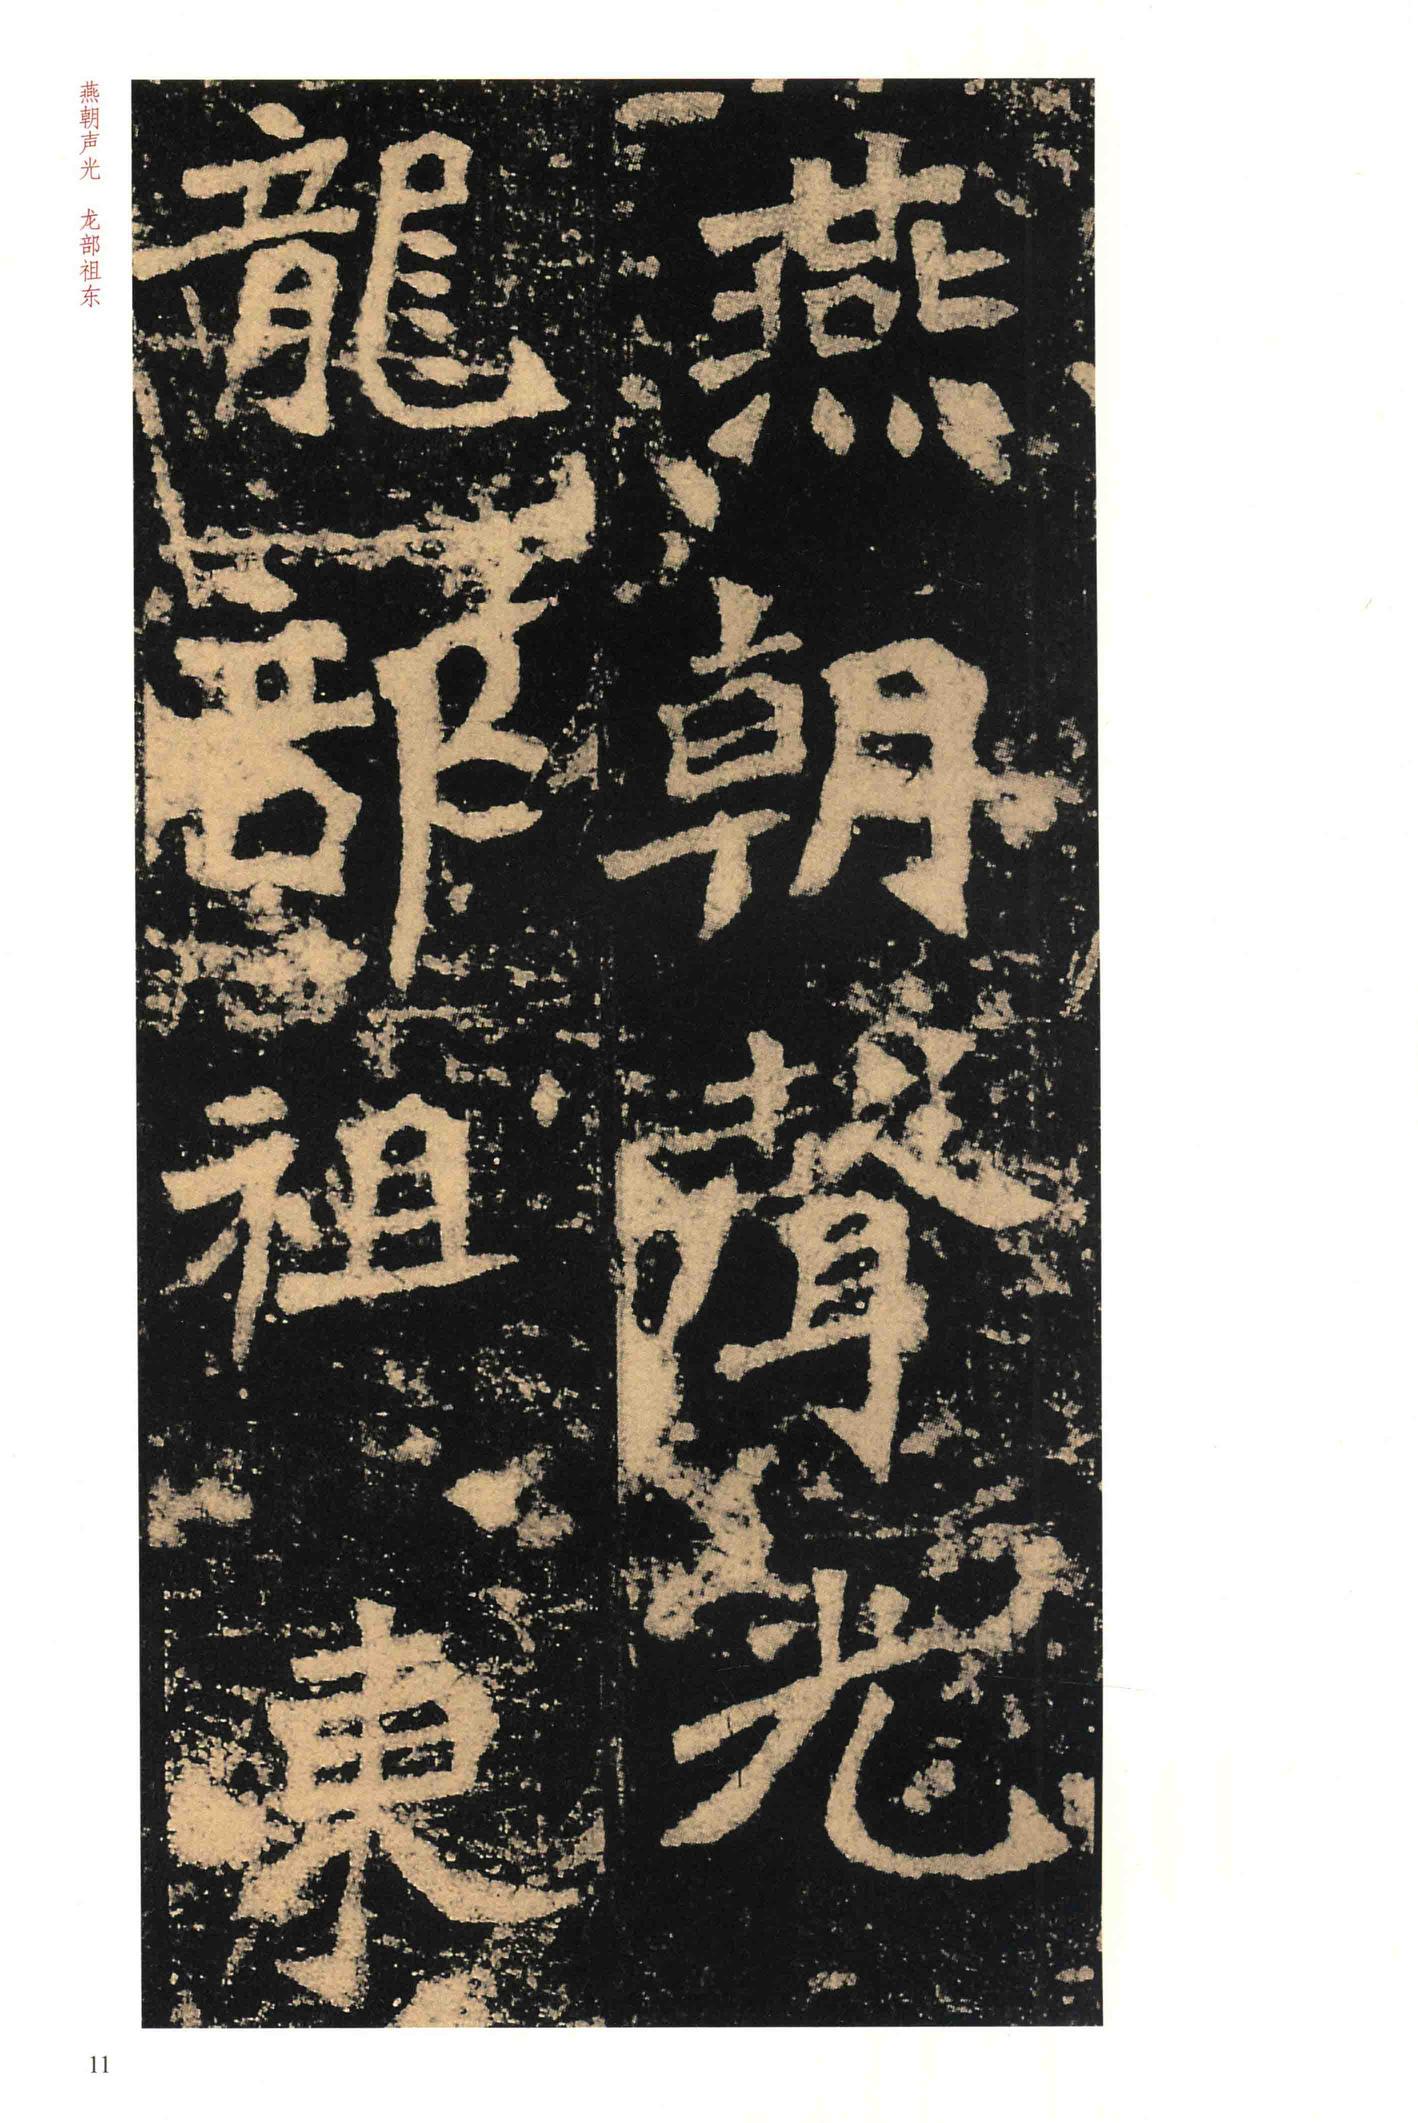 燕朝聲光
龍部祖東
燕朝声光 龙部祖东
11